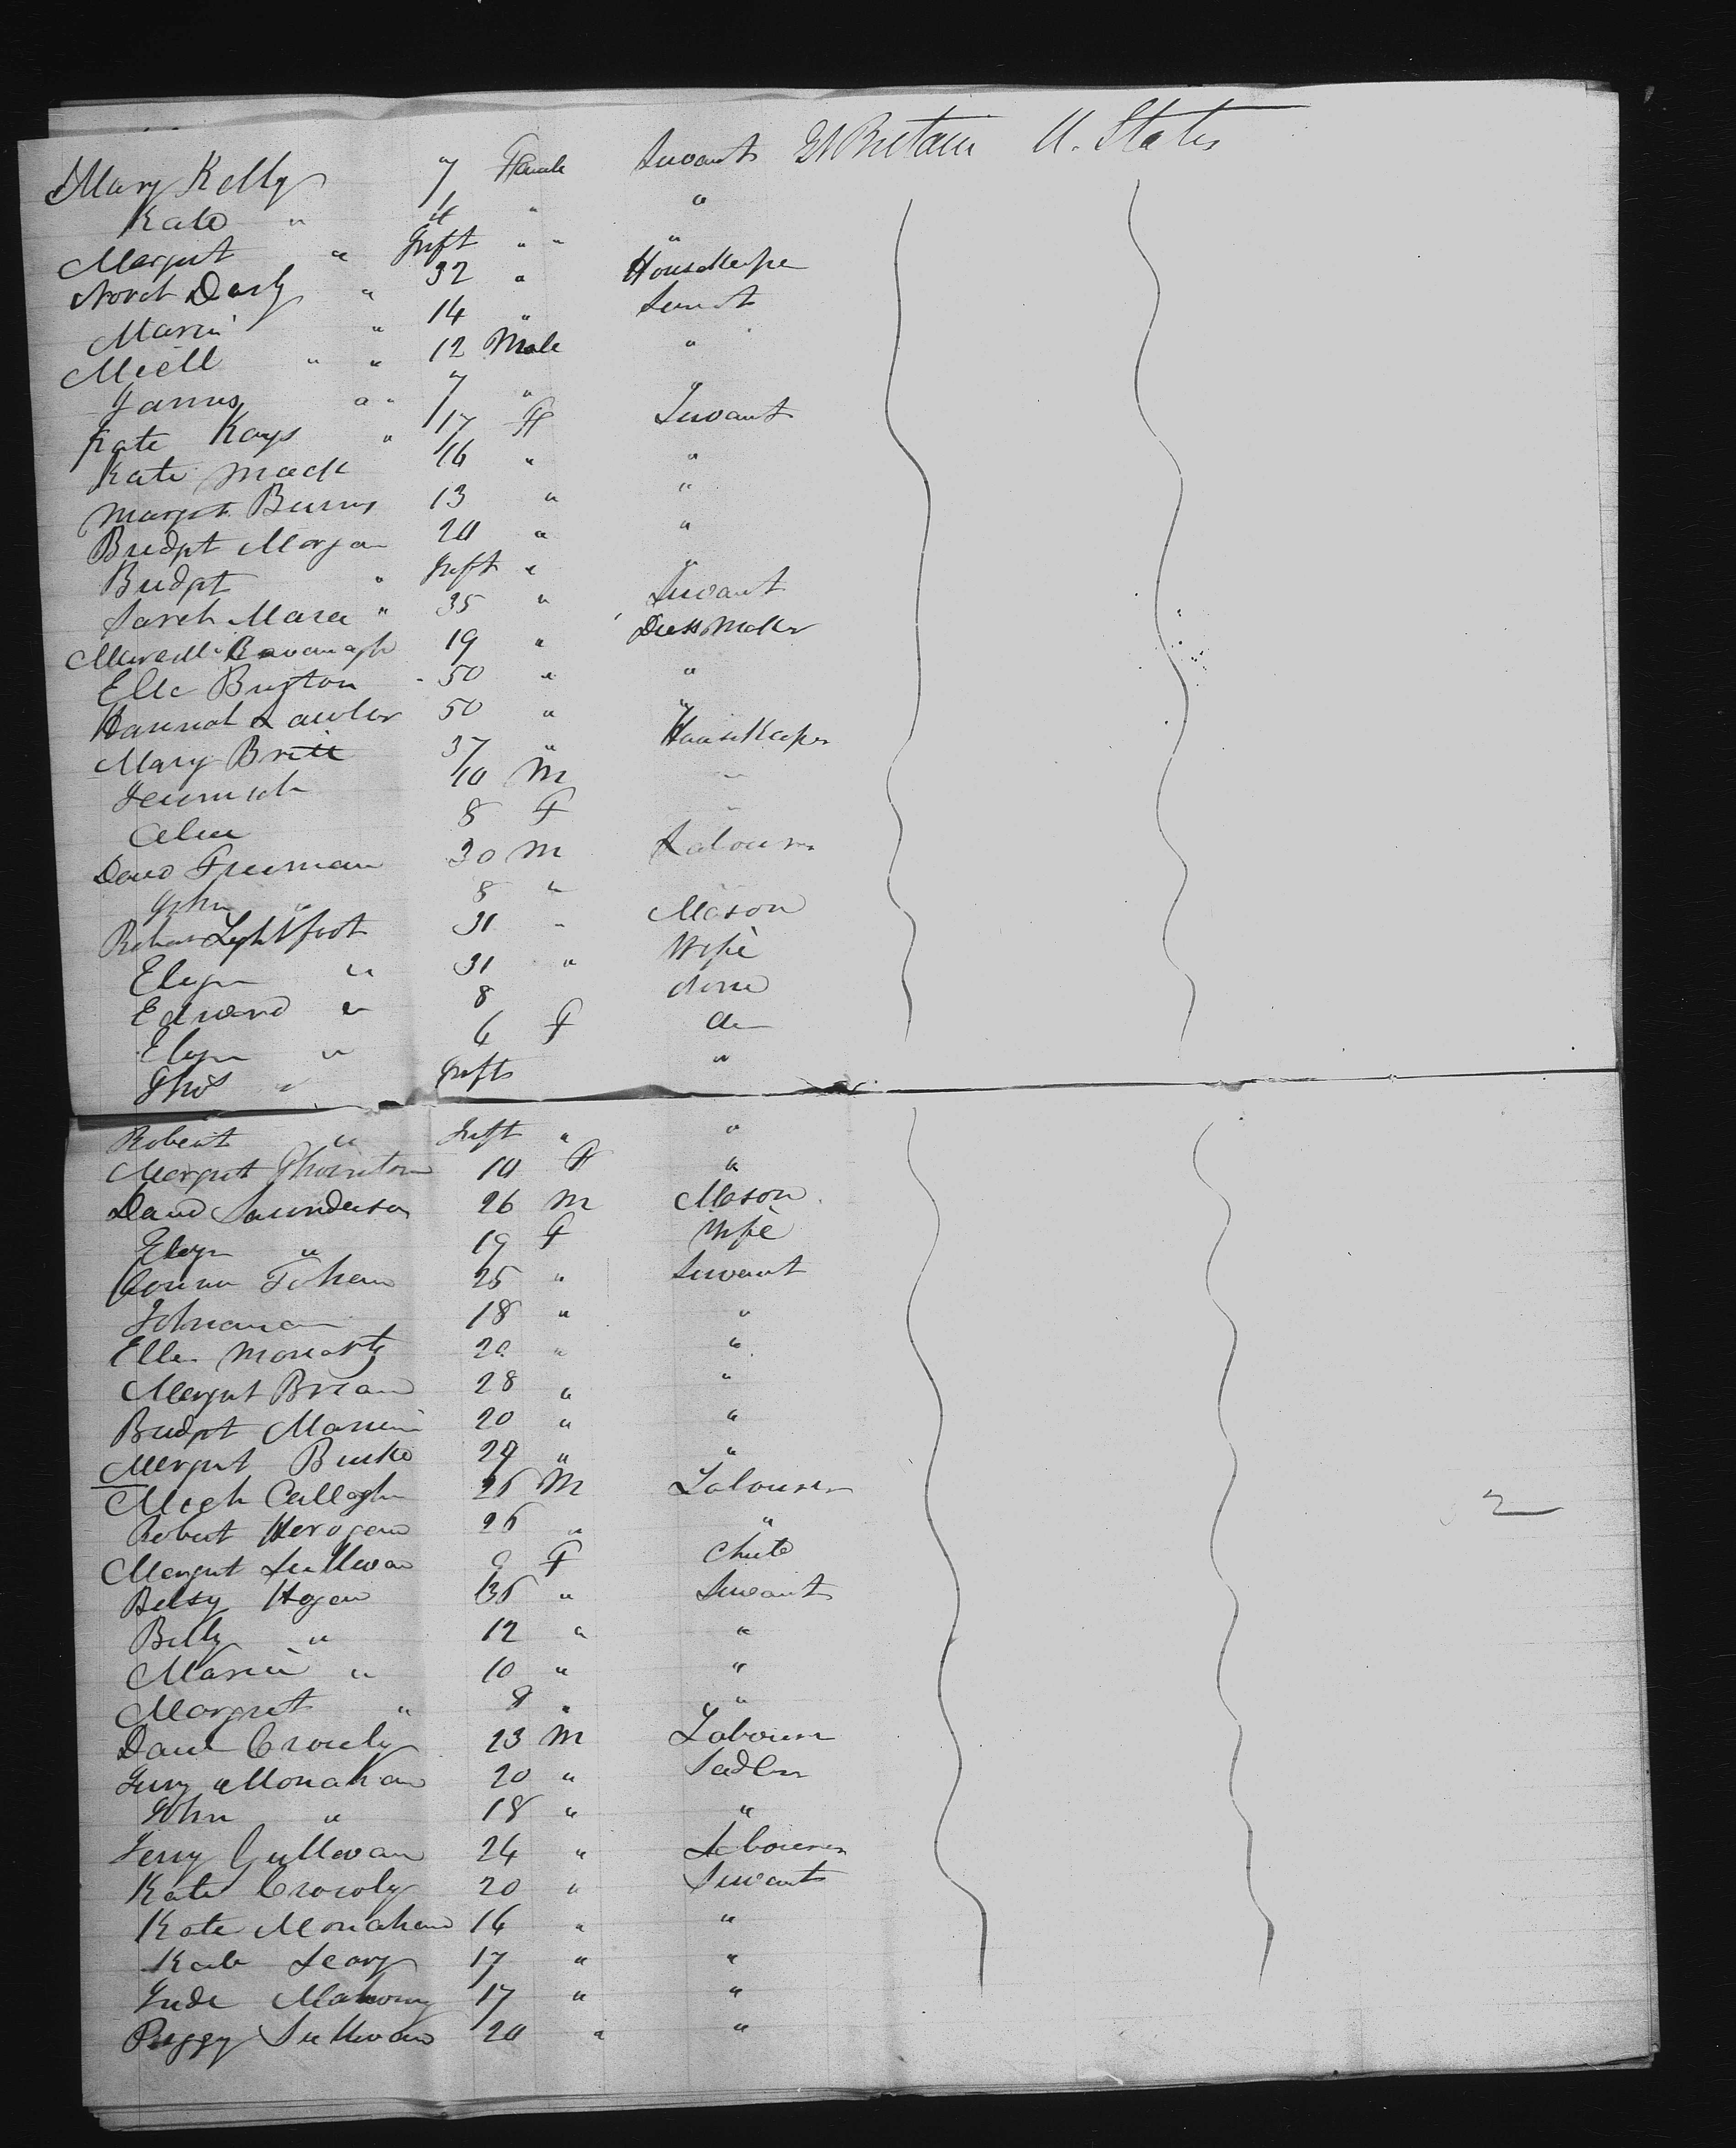 Mary Kelly 7 Female Servant Gt Britain U. States
Kate " 4 " "
Margret " Inft " " "
Norah Daily " 32 " Housekeeper
Maria " 14 " Servnt
Micll " " 12 Male "
James " " 7 " "
Kate Kays " 17 F Servant
Kate Mack 16 " "
Margrt Burns 13 " "
Bridgt Morgan 20 " "
Bridgt " Inft " "
Sarah Mara " 35 " Servant
Cavanagh 19 " Dress Maker
Elle Burton 50 " "
Hannah Lawlor 50 " "
Mary Britt 37 " House Keeper
Jeremiah 10 M "
8 F "
David Freeman 30 M Labourer
John " 8 "
Lightfoot 31 " Mason
" 31 " Wife
Edward " 8
" 6 F
" Infts "
Robert " Inft " "
Margrett Thornton 10 F "
David Saunderson 26 M Mason
" 19 F Wife
25 " Servant
18 " "
Ellen Moriarty 20 " "
Margrat Brian 28 " "
Bridgt 20 " "
Margrat Burke 24 " "
Mich Callaghn 25 M Labourer
Robert 26 " "
Margrat Sullivan F
Betsy Hogan 35 " Servant
Billy " 12 " "
Maria " 10 " "
Margret " 8 " "
Danl Crowly 23 M Labourer
Jerry Monahan 20 " Sadler
John " 18 " "
Jerry Sullivan 24 " Labourer
Kate Crowly 20 " Servant
Kate Monahan 16 " "
Kate Leary 17 " "
Jude Mahony 17 " "
Peggy Sullivan 20 " "
2